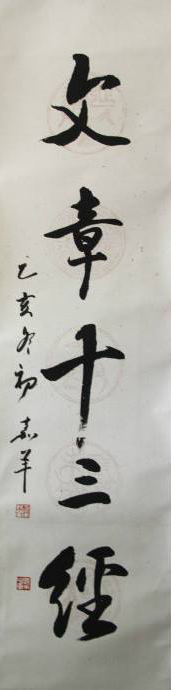 文章十三經
乙亥冬初 嘉羊